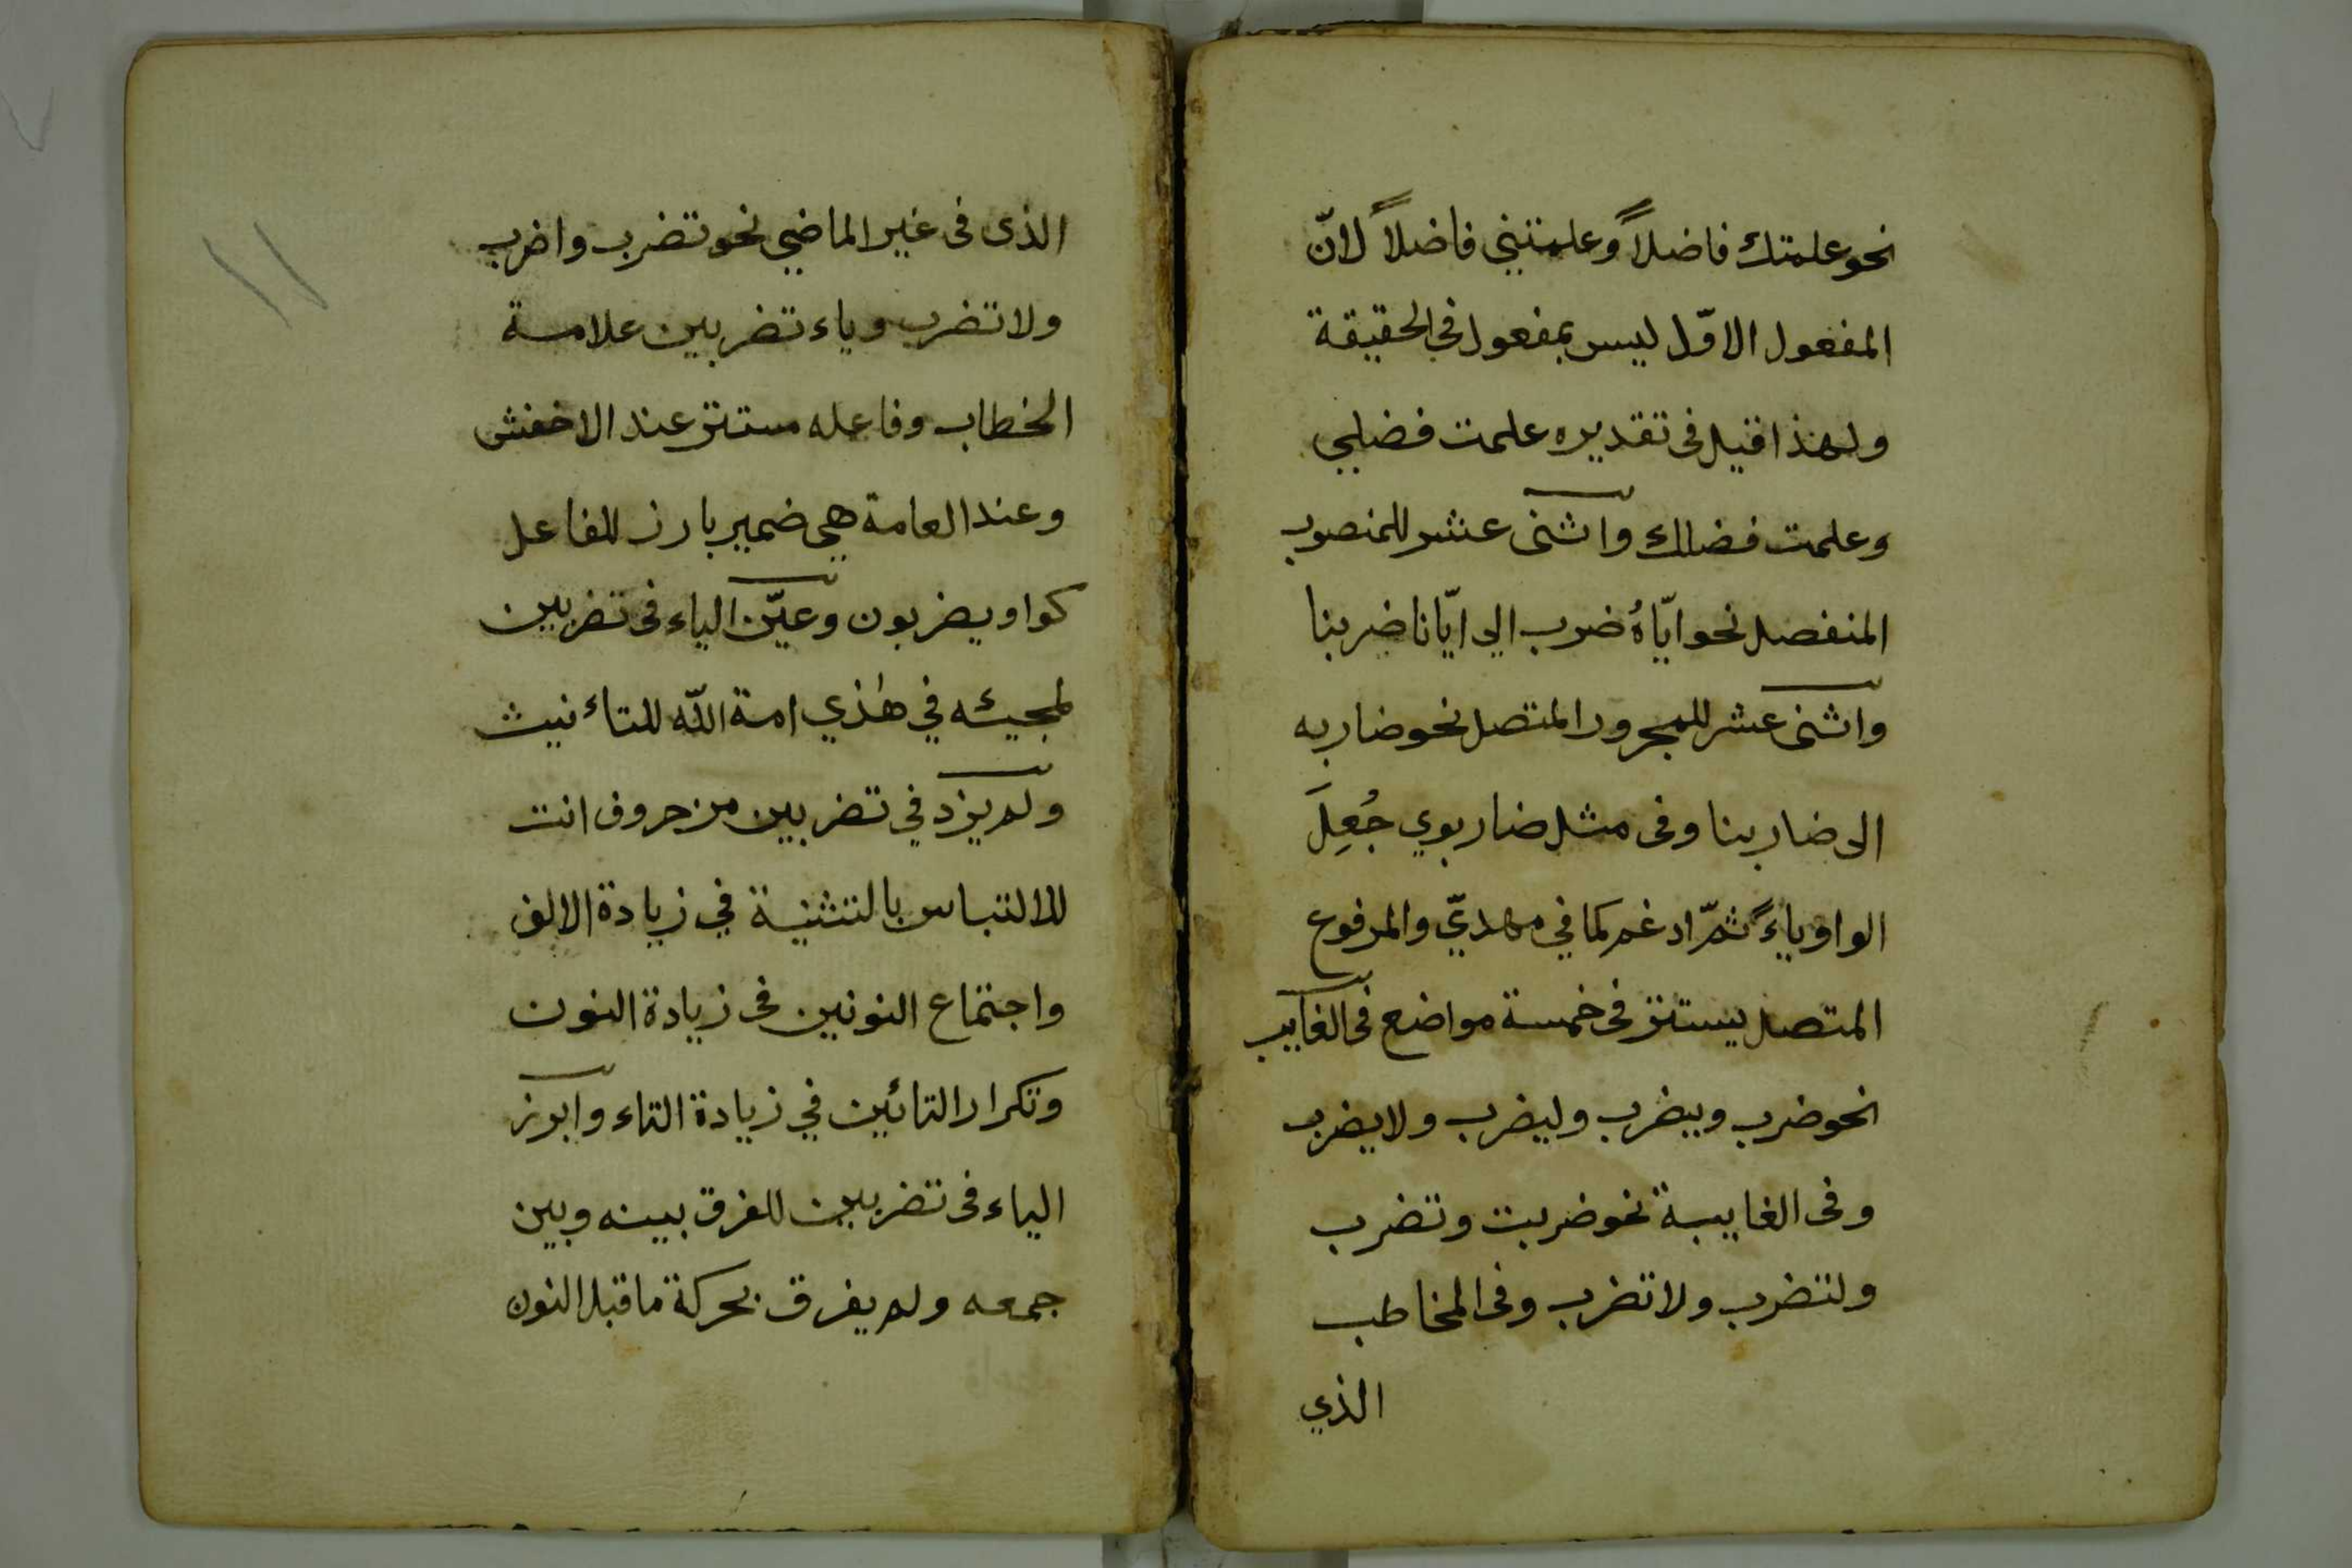 نحو علمتك فاضلاً وعلمتني فاضلاً لانّ
المفعول الاوّل ليس بمفعول في الحقيقة
ولهذا قيل فى تقديره علمت فضلي
وعلمت فضلك واثنى عشر للمنصوب
المنفصل نحو ايّاهُ ضرب الي ايّانا ضربنا
واثنى عشر للمجرور المتصل نحو ضاربه
الى ضاربنا وفى مثل ضاربوي جُعِلَ
الواو ياءً ثمّ ادغم كما في مهديّ والمرفوع
المتصل يستتر فى خمسة مواضع فى الغايب
نحو ضرب ويضرب وليضرب ولا يضرب
وفى الغايبة نحو ضربت وتضرب
ولتضرب ولا تضرب وفى المخاطب
الذي
الذى فى غير الماضي نحو تضرب واضرب
ولا تضرب وياء تضربين علامة
الخطاب وفاعله مستتر عند الاخفش
وعند العامة هي ضمير بارز للفاعل
كواو يضربون وعيّن الياء فى تضربين
لمجيئه في هٰذي امة اللّه للتاءنيث
ولم يزد في تضربين من حروف انت
للالتباس بالتثنية في زيادة الالف
واجتماع النونين فى زيادة النون
وتكرار التائين في زيادة التاء وابرز
الياء فى تضربين للفرق بينه وبين
جمعه ولم يفرق بحركة ما قبل النون
١١